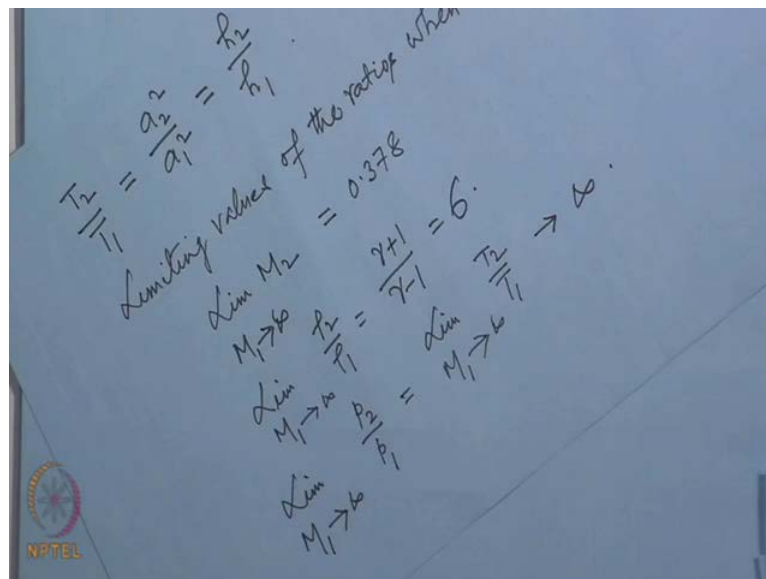 T₂/T₁ = a₂²/a₁² = h₂/h₁ .
Limiting values of the ratios when
Lim M₁→∞ M₂ = 0.378
Lim M₁→∞ ρ₂/ρ₁ = γ+1/γ-1 = 6.
Lim M₁→∞ p₂/p₁ = Lim M₁→∞ T₂/T₁ → ∞.
NPTEL